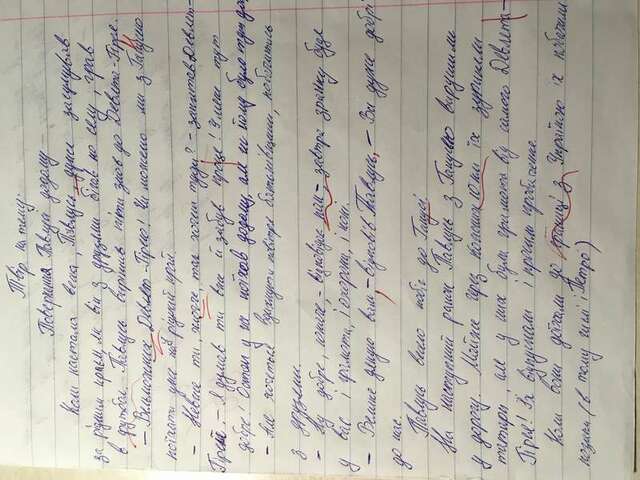 Твір на тему:
Повернення Павлуся додому
Коли настала весна, Павлусь, дуже засумував
за рідним краєм, як він з друзями бігав по селу, грав
в футбол. Павлусь вирішив піти знов до Девлета-Гірея.
– Вельможних Девлет-Гірею! Чи можемо ми з Ганусею
поїхати уже на рідний край.
– Невже ти, юначе, так хочеш туди? – запитав Девлет-
Гірей. – Я думав ти вже й забув про це! У мене тут
добре! Остап у же поїхав додому, але не йому було тут
– Але хочеться вдихнути повітря батьківщини, побачитись
з друзями.
– Ну добре, юначе, – відповідає пан – завтра зранку буде
у вас і грамота, і охорона, і коні.
– Велике дякую вам, – відповів Павлусь, – Ви дуже добрі
до нас.
Павлусь весело побіг до Ганусі.
На наступний ранок Павлусь з Ганусею вирушили
у дорогу. Майже через кожних 10 км їх зупиняли
татари, але у них була грамота від самого Девлета-
Гірея! Їх відпускали і просили пробачення.
Коли вони доїхали до границі з Україною їх побачили
козаки (в тому числі і Петро)